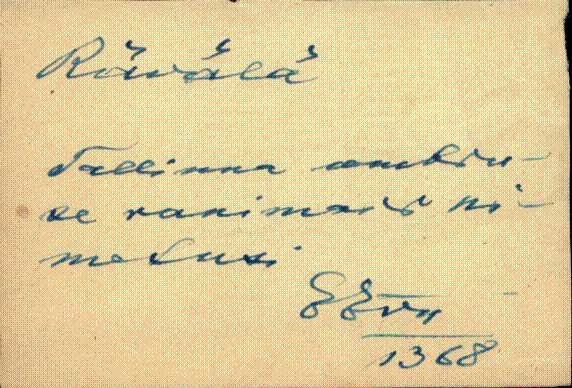 Räwälä
Tallinna ümbru-
se vanimaid ni-
metusi
1368